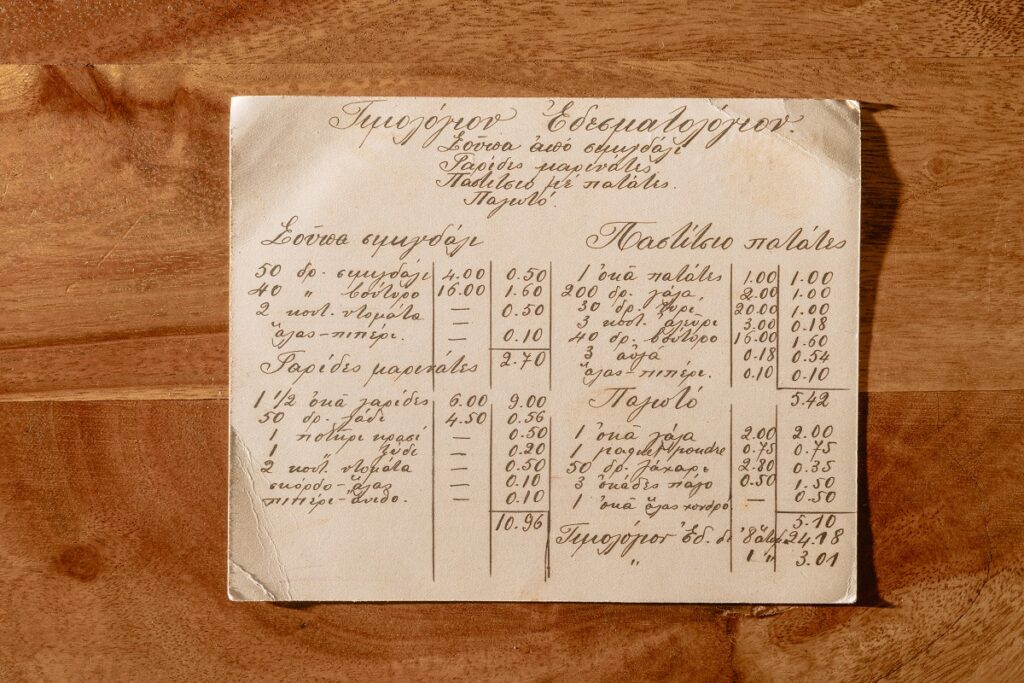 Τιμολόγιον Ἐδεσματολόγιον.
Σοῦπα ἀπό σιμιγδάλι
Γαρίδες μαρινάτες
Παστίτσιο μέ πατάτες.
Παγωτό.
Σοῦπα σιμιγδάλι
50 δρ. σιμιγδάλι 4.00 0.50
40 " βούτυρο 16.00 1.60
2 κουτ. ντομάτα — 0.50
ἅλας-πιπέρι. — 0.10
2.70
Γαρίδες μαρινάτες
1 1/2 ὀκᾶ γαρίδες 6.00 9.00
50 δρ. λάδι 4.50 0.56
1 ποτῆρι κρασί — 0.50
1 " ξύδι — 0.20
2 κουτ. ντομάτα — 0.50
σκόρδο-ἅλας — 0.10
πιπέρι-ἄνιθο. — 0.10
10.96
Παστίτσιο πατάτες
1 ὀκᾶ πατάτες 1.00 1.00
200 δρ. γάλα, 2.00 1.00
30 δρ. τυρί 20.00 1.00
3 κουτ. ἀλεύρι 3.00 0.18
40 δρ. βούτυρο 16.00 1.60
3 αὐγά 0.18 0.54
ἅλας-πιπέρι. 0.10 0.10
5.42
Παγωτό
1 ὀκᾶ γάλα 2.00 2.00
1 poudre 0.75 0.75
50 δρ. ζάχαρι 2.80 0.35
3 ὀκάδες πάγο 0.50 1.50
1 ὀκᾶ ἅλας χονδρό — 0.50
5.10
Τιμολόγιον Ἐδ. δι' 8 ἄτομ. 24.18
" 1 " 3.01